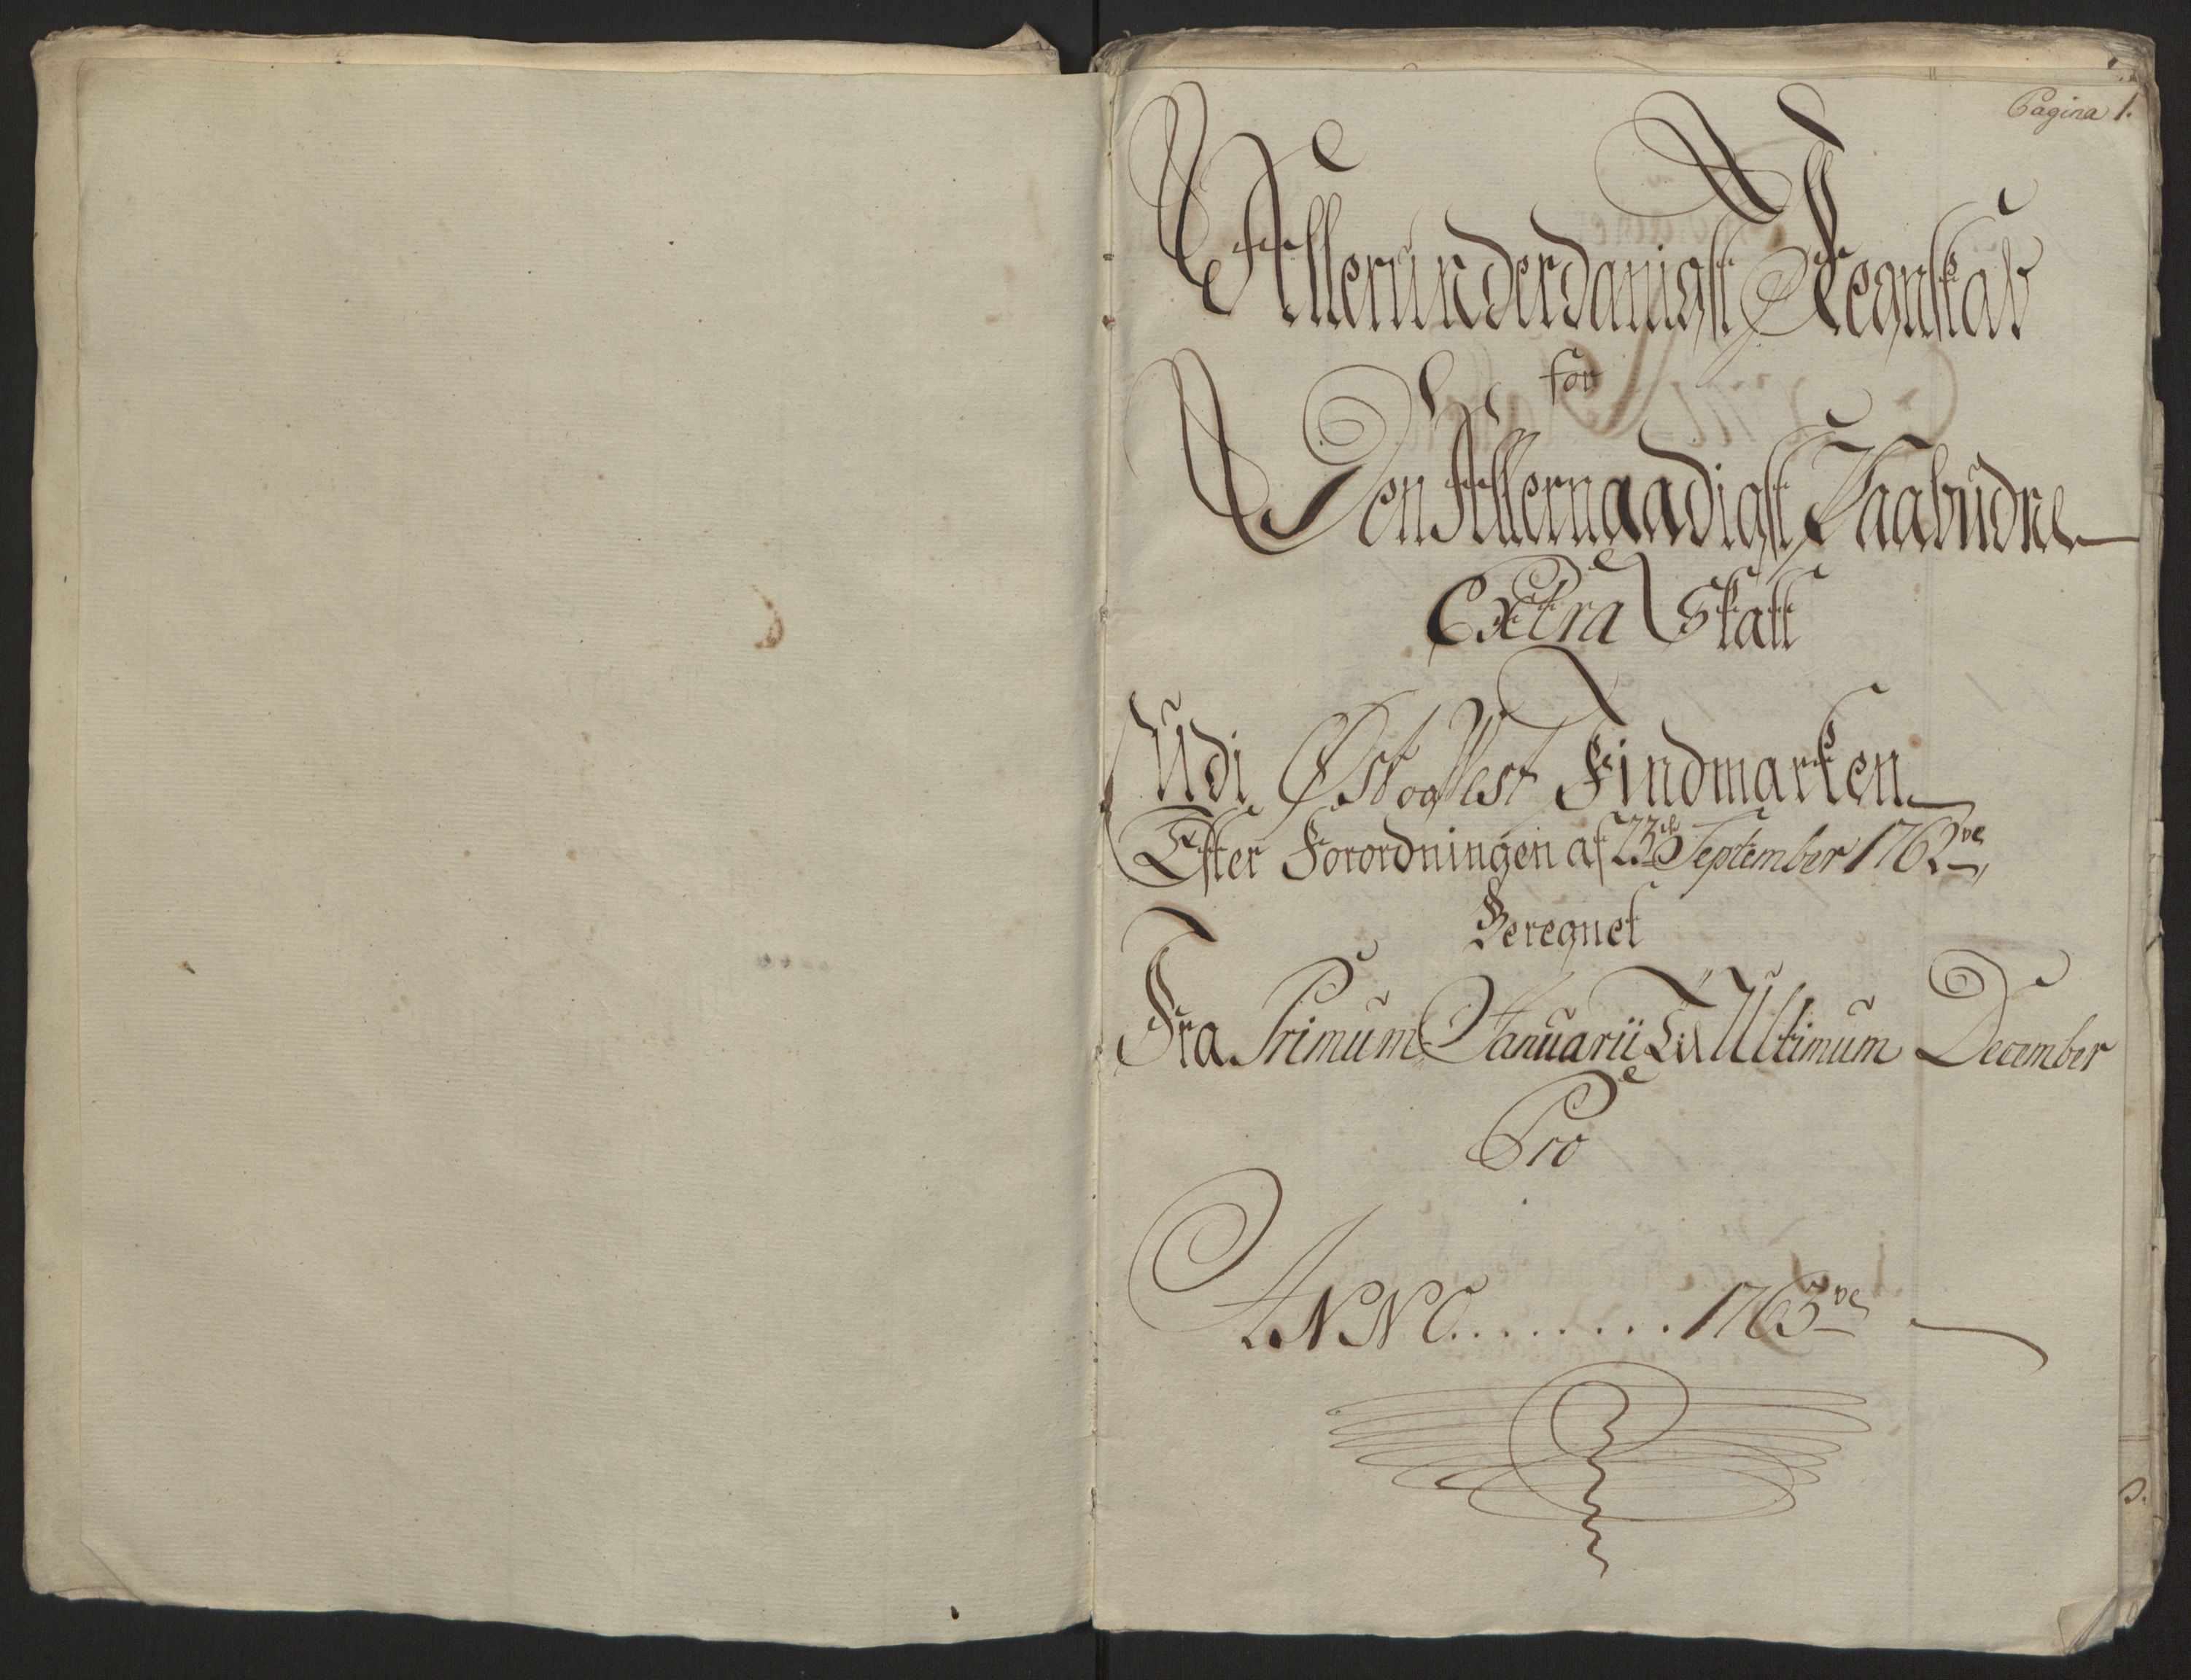 Pagina 1.
Allerunderdanigst Regnskab
for
Den Allernaadigst Paabudne
Extra Skatt
Udi Øst og West Findmarken
Efter Forordningen af 23de September 1762ve
Beregnet
Fra Primum Januarii Til Ultimum December
Pro
ANNO........1763ve